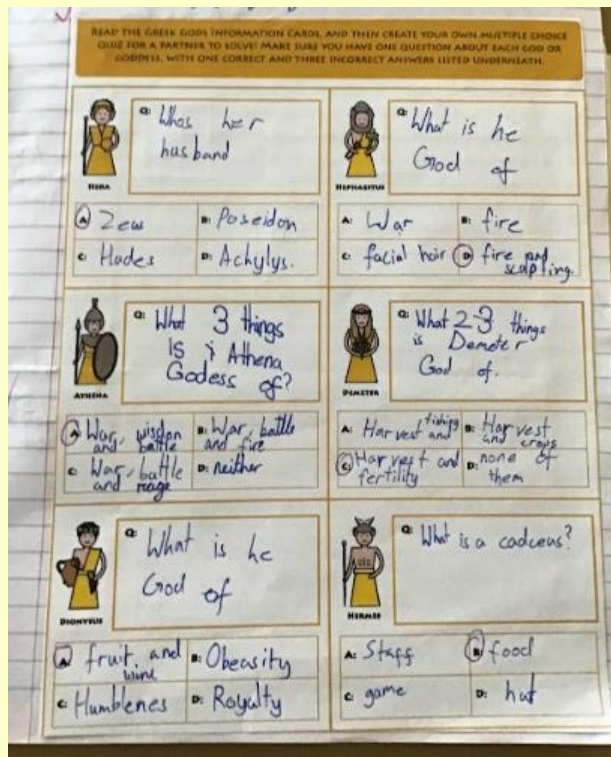 READ THE GREEK GODS INFORMATION CARDS, AND THEN CREATE YOUR OWN MULTIPLE CHOICE
QUIZ FOR A PARTNER TO SOLVE! MAKE SURE YOU HAVE ONE QUESTION ABOUT EACH GOD OR
GODDESS, WITH ONE CORRECT AND THREE INCORRECT ANSWERS LISTED UNDERNEATH.
HERA
Q: Whos her
husband
A: Zeus
B: Poseidon
C: Hades
D: Achylys.
HEPHAESTUS
Q: What is he
God of
A: War
B: fire
C: facial hair
D: fire and
sculpting
ATHENA
Q: What 3 things
IS Athena
Godess of?
A: War, wisdon
and battle
B: War, battle
and fire
C: War, battle
and reage
D: neither
DEMETER
Q: What 23 things
is Demeter
God of.
A: Harvest and fishing
B: Harvest
and crops
C: Harvest and
fertility
D: none of
them
DIONYSUS
Q: What is he
God of
A: fruit, and
wine
B: Obeasity
C: Humblenes
D: Royalty
HERMES
Q: What is a cadceus?
A: Staff
B: food
C: game
D: hat